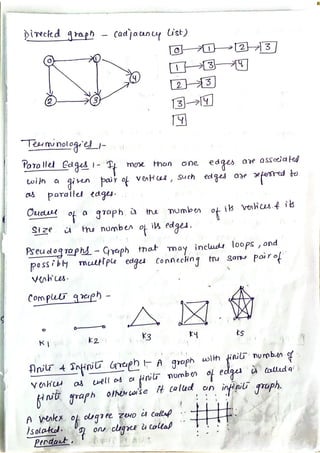 Directed graph - (adjacency list)
0 1 2 3
0 → 1 → 2 → 3
1 → 3 → 4
2 → 3
3 → 4
4
Terminologies :-
Parallel Edges :- If more than one edges are associated
with a given pair of vertices, such edges are referred to
as parallel edges.
of a graph is the number of its vertices & its
Size is the number of its edges.
Pseudographs - Graph that may include loops, and
possibly multiple edges connecting the same pair of
vertices.
Complete graph -
K1 K2 K3 K4 K5
Finite & Infinite Graph :- A graph with finite number of
vertices as well as a finite number of edges is called a
finite graph otherwise it called an infinite graph.
A vertex of degree zero is called
Isolated. of one degree is called
Pendant.